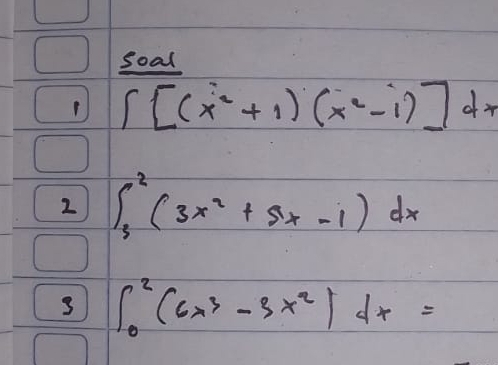 soal
1 ∫ [(x² + 1) (x² - 1)] dx
2 ∫₃² (3x² + 5x - 1) dx
3 ∫₀² (6x³ - 3x²) dx =